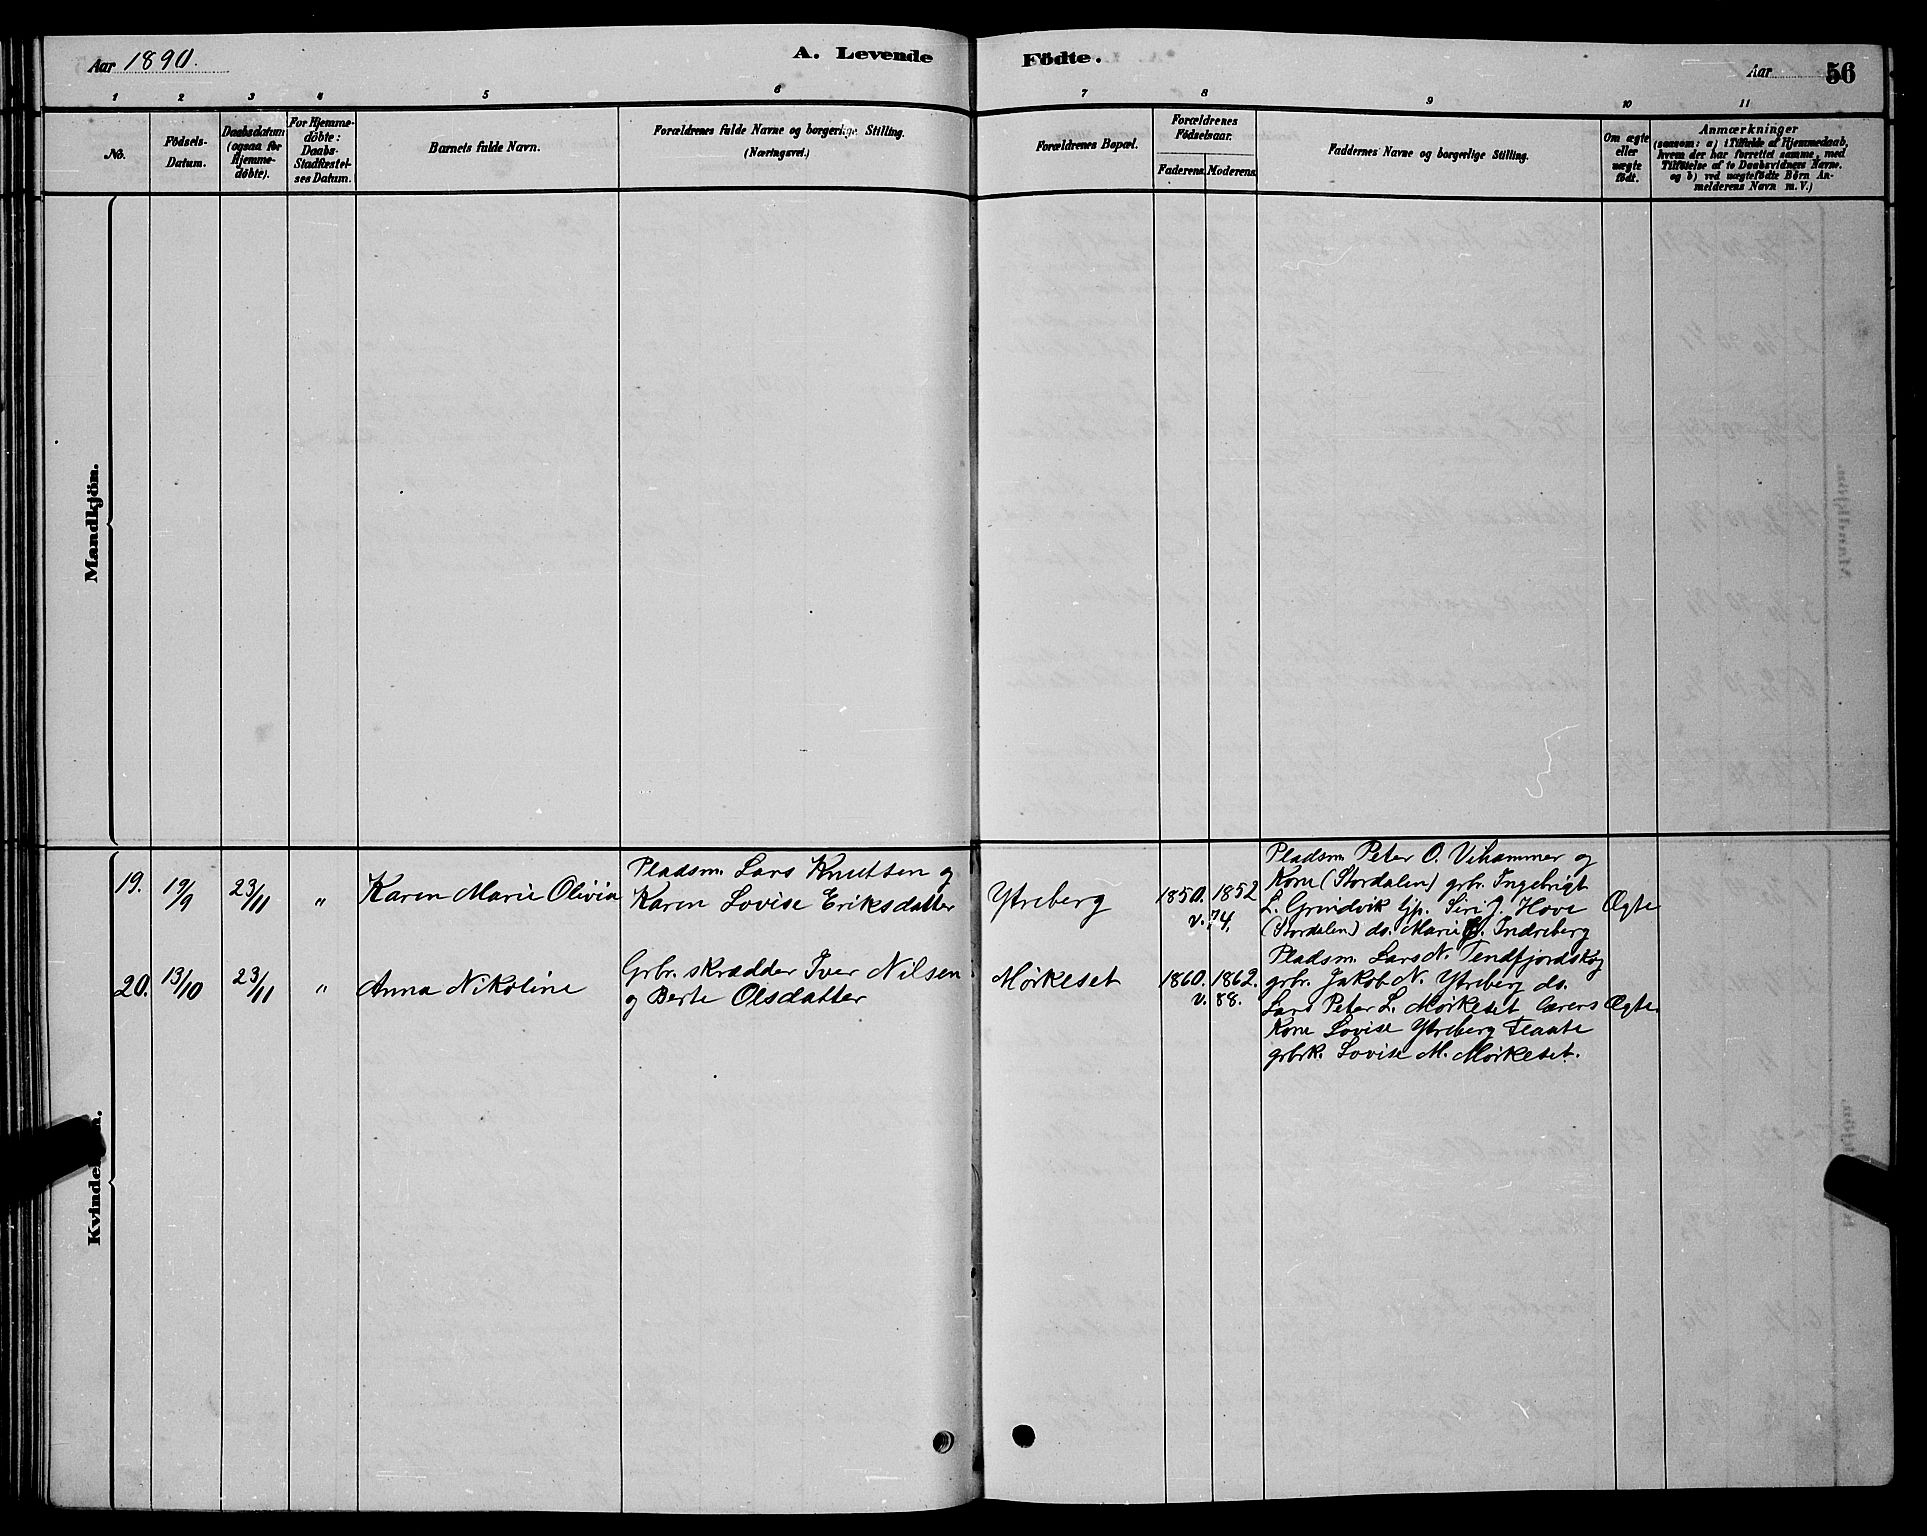 Aar 1890.
A. Levende Födte.
Aar
56
1 2 3 4 5 6 7 8 9 10 11
No.
Födsels-
Datum.
Daabsdatum
(ogsaa for
Hjemme-
döbte).
For Hjemme-
döbte:
Daabs-
Stadfæstel-
ses Datum.
Barnets fulde Navn.
Forældrenes fulde Navne og borgerlige Stilling.
(Næringsvei.)
Forældrenes Bopæl.
Forældrenes
Födselsaar.
Faderens. Moderens.
Faddernes Navne og borgerlige Stilling.
Om ægte
eller
uægte
födt.
Anmærkninger
(saasom: a) i Tilfælde af Hjemmedaab,
hvem der har forrettet samme, med
Tilföielse af to Daabsvidners Navne.
og b) ved uægtefödte Börn An-
melderens Navn m. V.)
Mandkjön.
19. 19/9 23/11 " Karen Marie Olivia
Pladsm. Lars Knutsen og
Karen Lovise Eriksdatter
Ytreberg
1850. 1852
v. 74.
Pladsm. Peter O. Vihammer og
Kone (Stordalen) grbr. Ingebrigt
L. Grindvik Gjp. Siri J. Hove
(Stordalen) ds. Marie Indreberg
Ægte
20. 13/10 23/11 " Anna Nikoline
Grbr. skrædder Iver Nilsen
og Berte Olsdatter
Mørkeset
1860. 1862.
v. 88.
Pladsm. Lars N. Tendfjordskog
grbr. Jakob N. Ytreberg ds.
Lars Peter L. Mørkeset Lærers
Kone Lovise Ytreberg Flaate
grbrk. Lovise M. Mørkeset.
Ægte